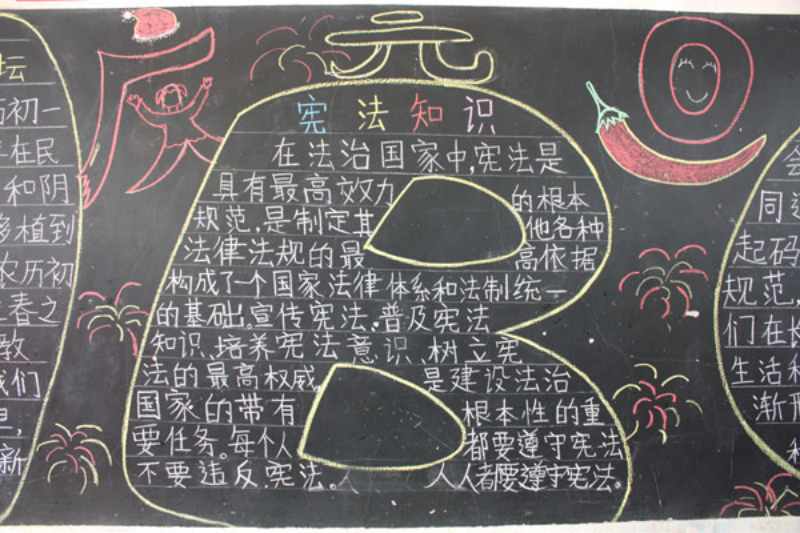 坛
历初一
在民
和阴
移植到
农历初
春之
教
我们
里,
新
庆 元
宪法知识
在法治国家中,宪法是
具有最高效力的根本
规范,是制定其他各种
法律法规的最高依据
构成了一个国家法律体系和法制统一
的基础。宣传宪法,普及宪法
知识,培养宪法意识,树立宪
法的最高权威,是建设法治
国家的带有根本性的重
要任务。每个人都要遵守宪法
不要违反宪法。人人都要遵守宪法。
会
同
起码
规范,
们在长
生活和
渐形